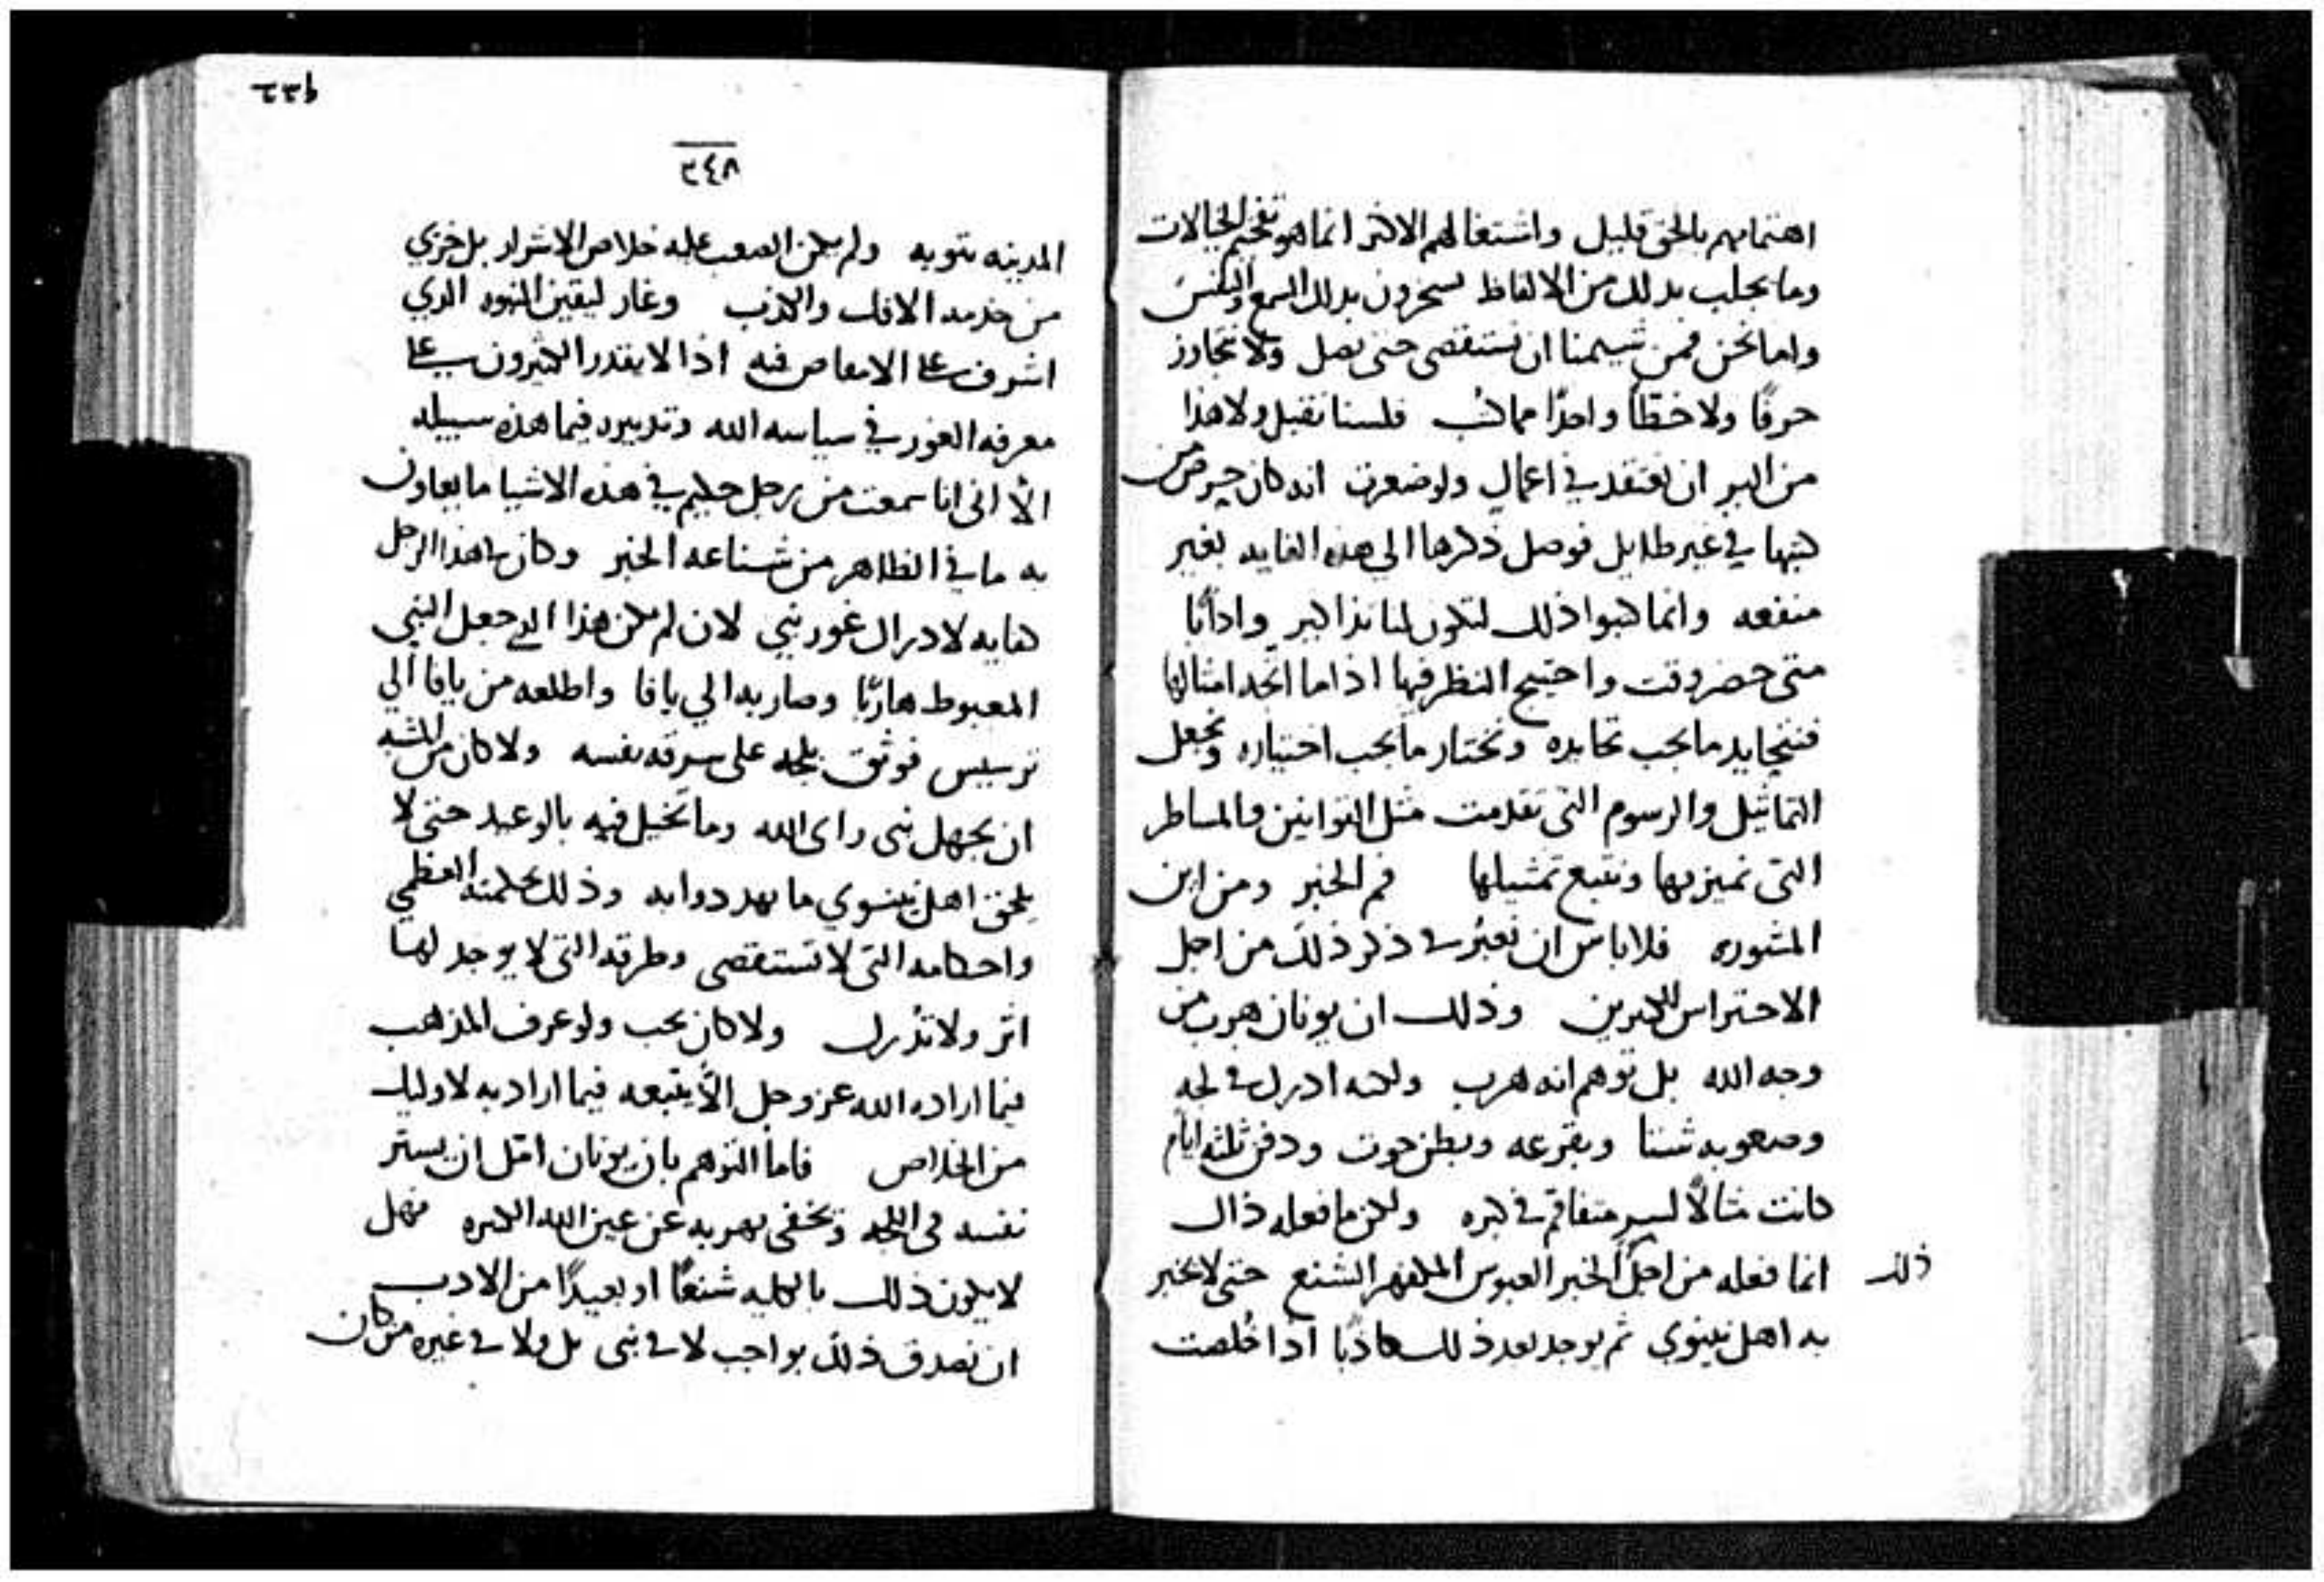 اهتمامهم بالحق قليل واشتغالهم الاكثر انما هو تفخيم الخيالات
وما يجلب بذلك من الالفاظ يسحرون بذلك السمع والنفس
واما نحن فمن شيمنا ان نستقصى حتى نصل ولا نتجاوز
حرفًا ولا خطًا واحدًا مما كتب فلسنا نقبل ولا هذا
من البر ان نعتقد في اعمال ولو صغرت انه كان حرص من
كتبها في غير طايل فوصل ذكرها الي هذه الغايه بغير
منفعه وانما كتبوا ذلك لتكون لنا تذاكير وادابًا
متى حضر وقت واحتيج النظر فيها اذا ما اتجه امثالها
فنتحايد ما يجب تحايده ونختار ما يجب اختياره ونجعل
التماثيل والرسوم التي تقدمت مثل القوانين والمساطر
التي نميز بها ونتبع تمثيلها فم الخبر ومن اين
المشوره فلا باس ان نعبر في ذكر ذلك من اجل
الاحتراس للكثيرين وذلك ان يونان هرب من
وجه الله بل توهم انه هرب ولكنه ادرك في لجه
وصعوبه شتا وبقرعه وبطن حوت ودفن ثلثه ايام
كانت مثالًا لسر متفاقم في كبره ولكن ما فعله ذاك
ذلك
انما فعله من اجل الخبر العبوس المكفهر الشنع حتى لا يخبر
به اهل نينوي ثم يوجد بعد ذلك كاذبًا اذا خُلصت
٢٣٦
٢٤٨
المدينه بتوبه ولم يكن الصعب عليه خلاص الاشرار بل خزي
من خدمه الافك والكذب وغار ليقين النبوه الذي
اشرف على الامعاص فيه اذا لا يقدر الكثيرون على
معرفه الغور في سياسه الله وتدبيره فيما هذه سبيله
الا اني انا سمعت من رجل حكيم في هذه الاشيا ما يعاون
به ما في الظاهر من شناعه الخبر وكان في هذا الرجل
كفايه لادراك غور نبي لان لم يكن هذا الذي جعل النبي
المغبوط هاربًا وصار به الي يافا واطلعه من يافا الي
ترسيس فوثق بلجه على سرقه نفسه ولا كان من المشبه
ان يجهل نبي راى الله وما تخيل فيه بالوعيد حتى لا
يلحق اهل نينوي ما تهددوا به وذلك بحكمته العظمي
واحكامه التي لا تستقصى وطرقه التي لا يوجد لها
اثر ولا تدرك ولا كان يجب ولو عرف المذهب
فيما اراده الله عز وجل الا يتبعه فيما اراد به لاوليك
من الخلاص فاما التوهم بان يونان امل ان يستر
نفسه في اللجه وتخفي بهربه عن عين الله الكبيره فهل
لا يكون ذلك بالكليه شنعًا او بعيدًا من الادب
ان نصدق ذلك بواجب لا في نبي بل ولا في غيره من كان